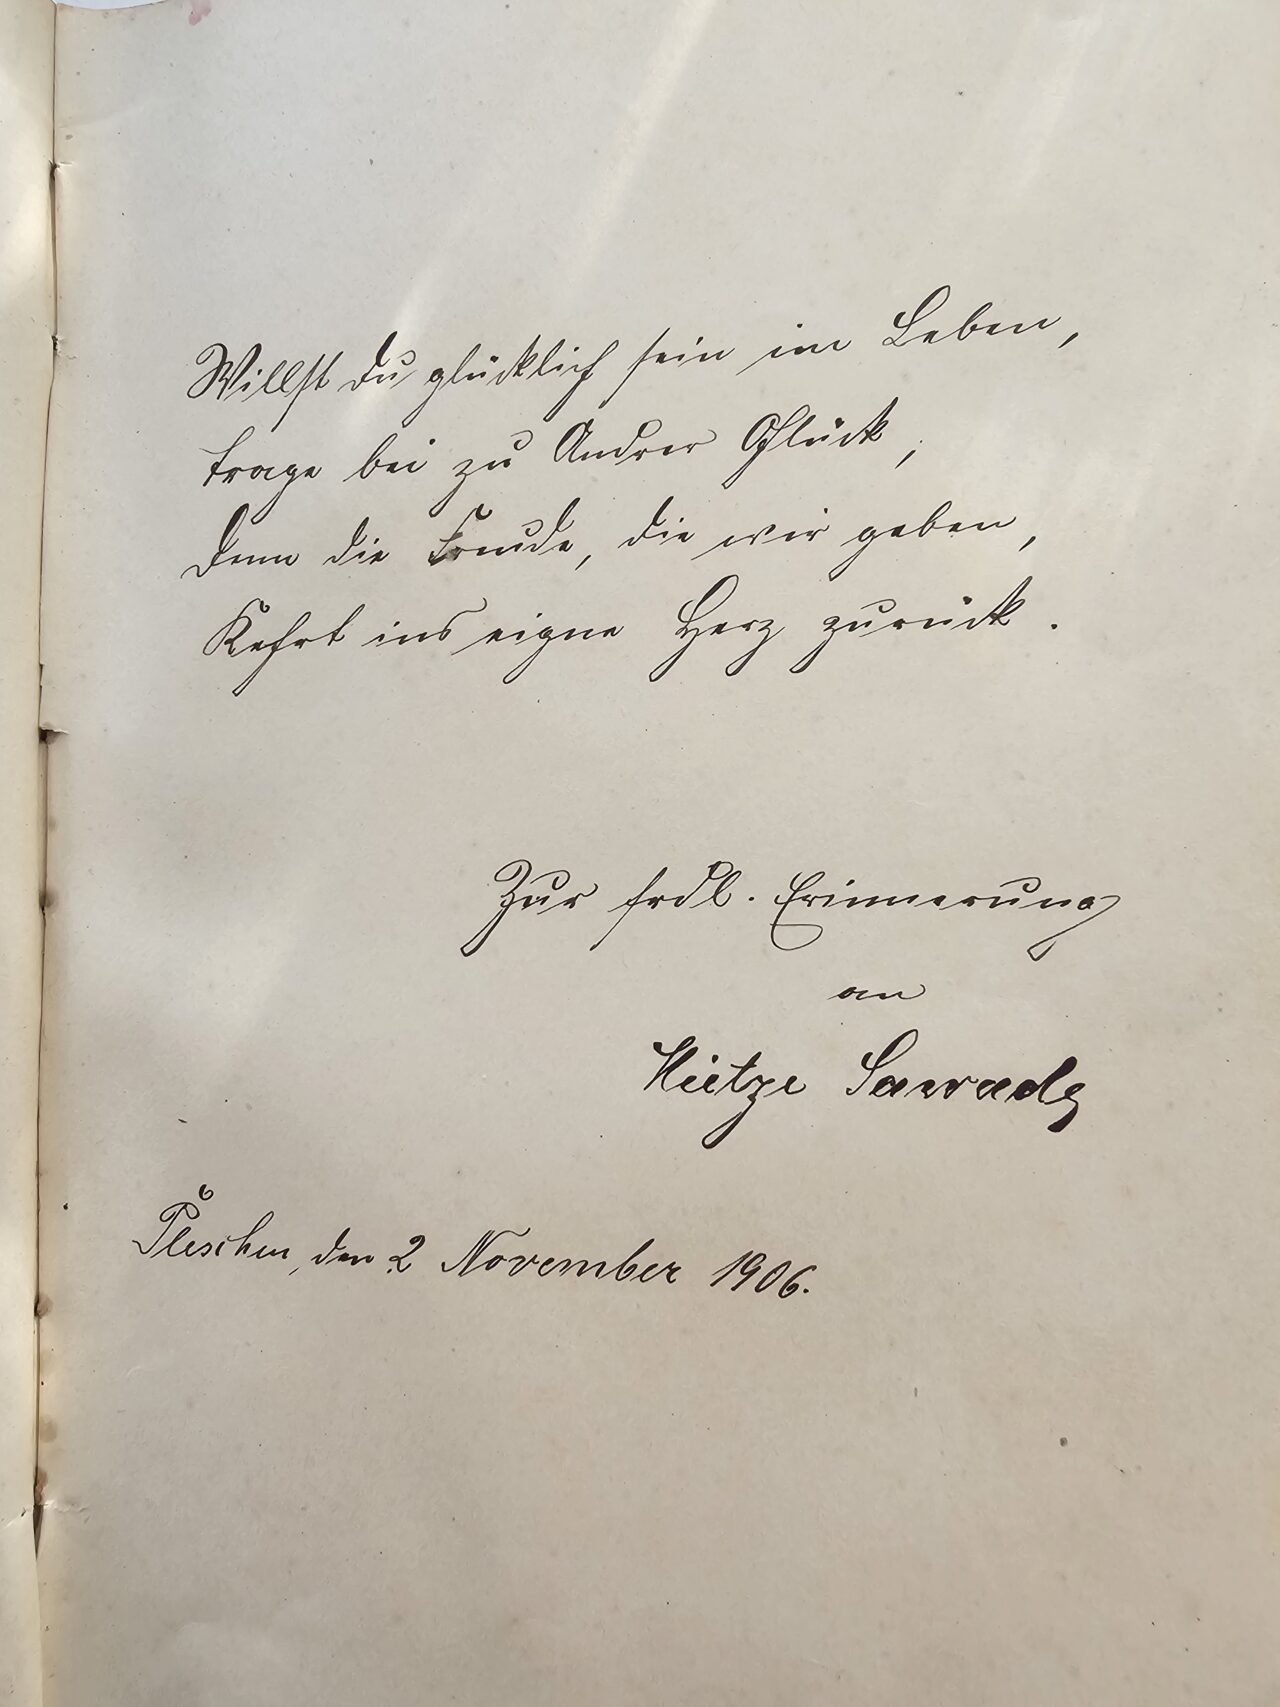 Willst du glücklich sein im Leben,
trage bei zu Andrer Glück,
Denn die Freude, die wir geben,
Kehrt ins eigne Herz zurück.
Zur frdl. Erinnerung
an
Pleschen, den 2 November 1906.